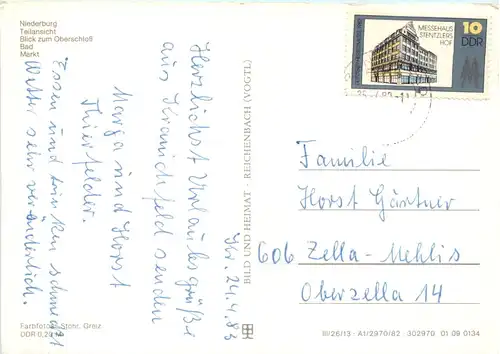 Niederburg
Teilansicht
Blick zum Oberschloß
Bad
Markt
Kr. 24.4.83
Herzlichst Urlaubsgrüße
aus Kranichfeld senden
Marga und Horst
Thierfelder.
Essen und trinken schmeckt
Wetter sehr veränderlich.
Farbfotos: Stchr. Greiz
DDR 0,20
BILD UND HEIMAT · REICHENBACH (VOGTL)
MESSEHAUS
STENTZLERS
HOF
10
DDR
Familie
Horst Gärtner
606 Zella-Mehlis
Oberzella 14
III/26/13 · A1/2970/82 · 302970 01 09 0134